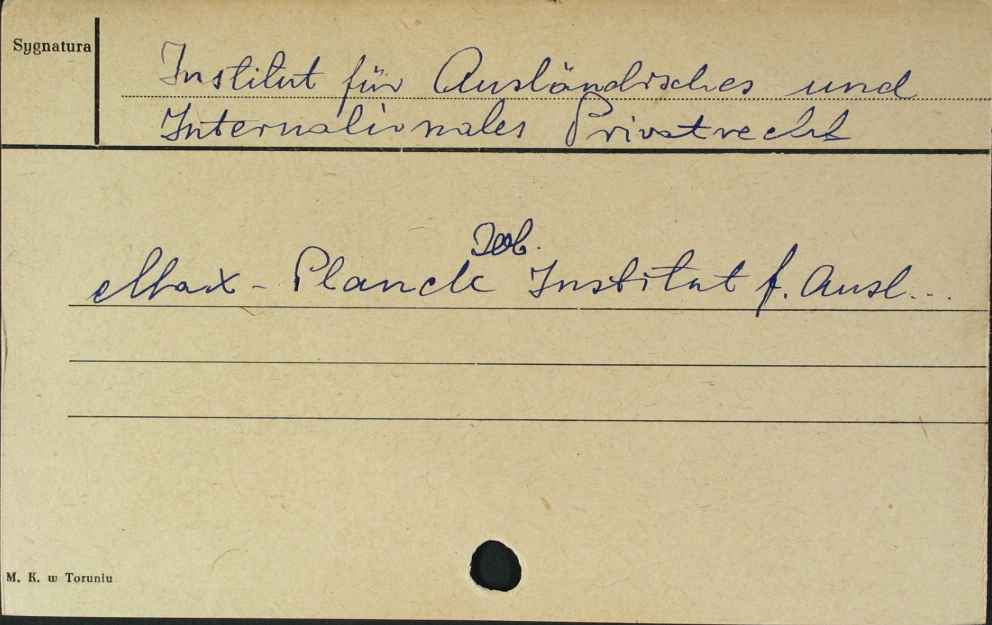 Sygnatura
Institut für Ausländisches und
Internationales Privatrecht
Zob.
Max-Planck Institut f. Ausl...
M. K. w Toruniu